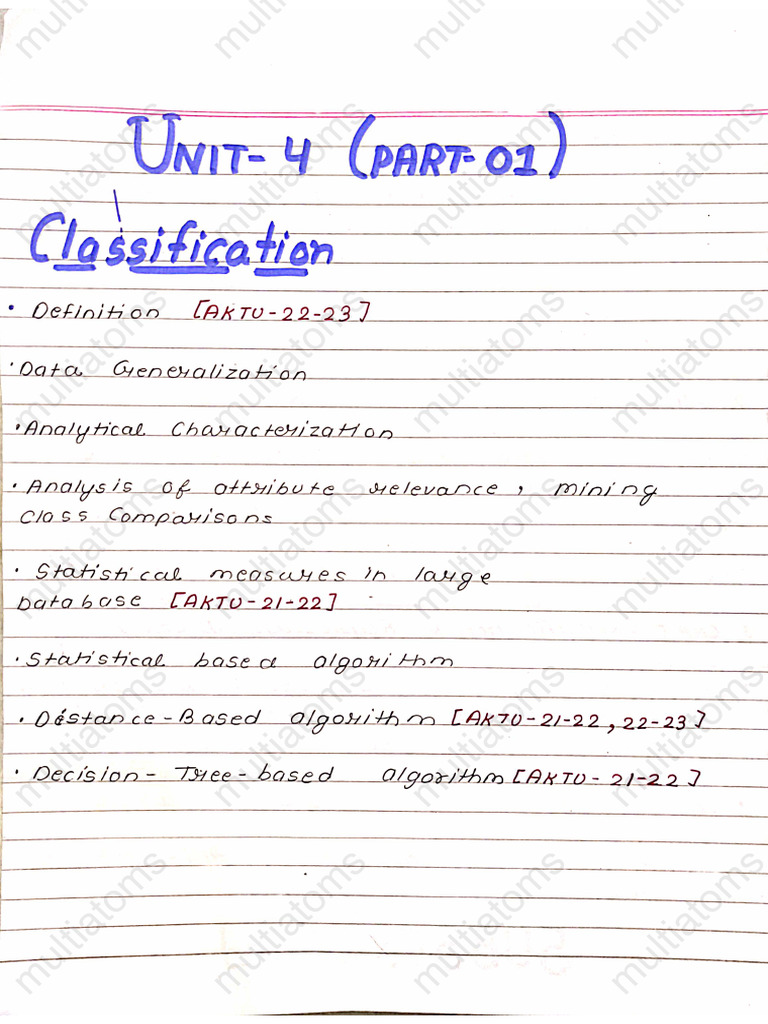 UNIT-4 (PART-01)
Classification
• Definition [AKTU-22-23]
• Data Generalization
• Analytical Characterization
• Analysis of attribute relevance, mining
class comparisons
• Statistical measures in large
Database [AKTU-21-22]
• Statistical based algorithm
• Distance-Based algorithm [AKTU-21-22, 22-23]
• Decision-Tree-based algorithm [AKTU-21-22]
multiatoms multiatoms multiatoms multiatoms
multiatoms multiatoms multiatoms multiatoms
multiatoms multiatoms multiatoms multiatoms
multiatoms multiatoms multiatoms multiatoms
multiatoms multiatoms multiatoms multiatoms
multiatoms multiatoms multiatoms multiatoms